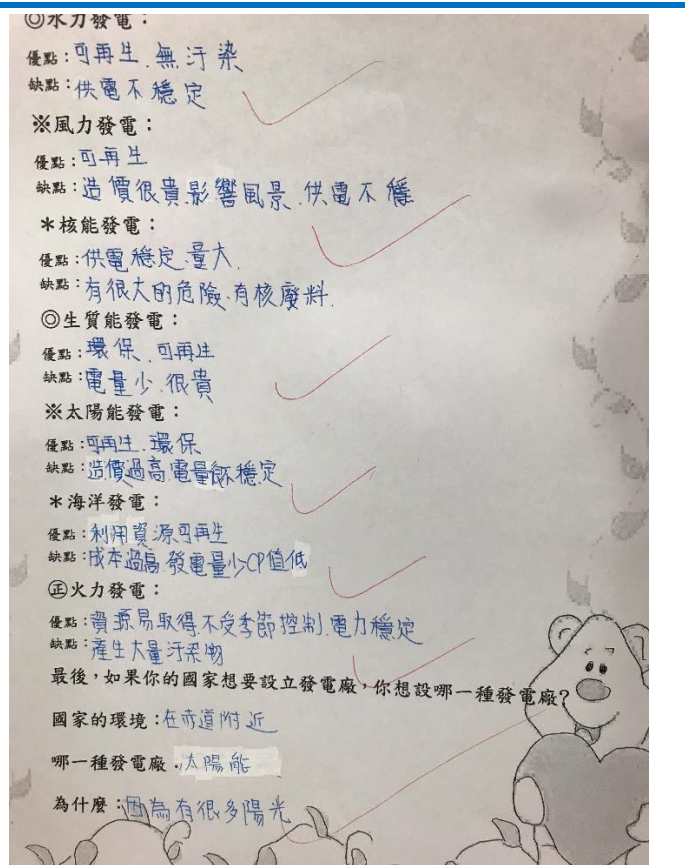 ◎水力發電：
優點：可再生、無汙染
缺點：供電不穩定
※風力發電：
優點：可再生
缺點：造價很貴.影響風景.供電不穩
＊核能發電：
優點：供電穩定.量大.
缺點：有很大的危險.有核廢料.
◎生質能發電：
優點：環保、可再生
缺點：電量少.很貴
※太陽能發電：
優點：可再生.環保
缺點：造價過高.電量不穩定
＊海洋發電：
優點：利用資源可再生
缺點：成本過高.發電量少CP值低
㊣火力發電：
優點：資源易取得.不受季節控制.電力穩定
缺點：產生大量汙染物
最後，如果你的國家想要設立發電廠，你想設哪一種發電廠？
國家的環境：在赤道附近
哪一種發電廠：太陽能
為什麼：因為有很多陽光